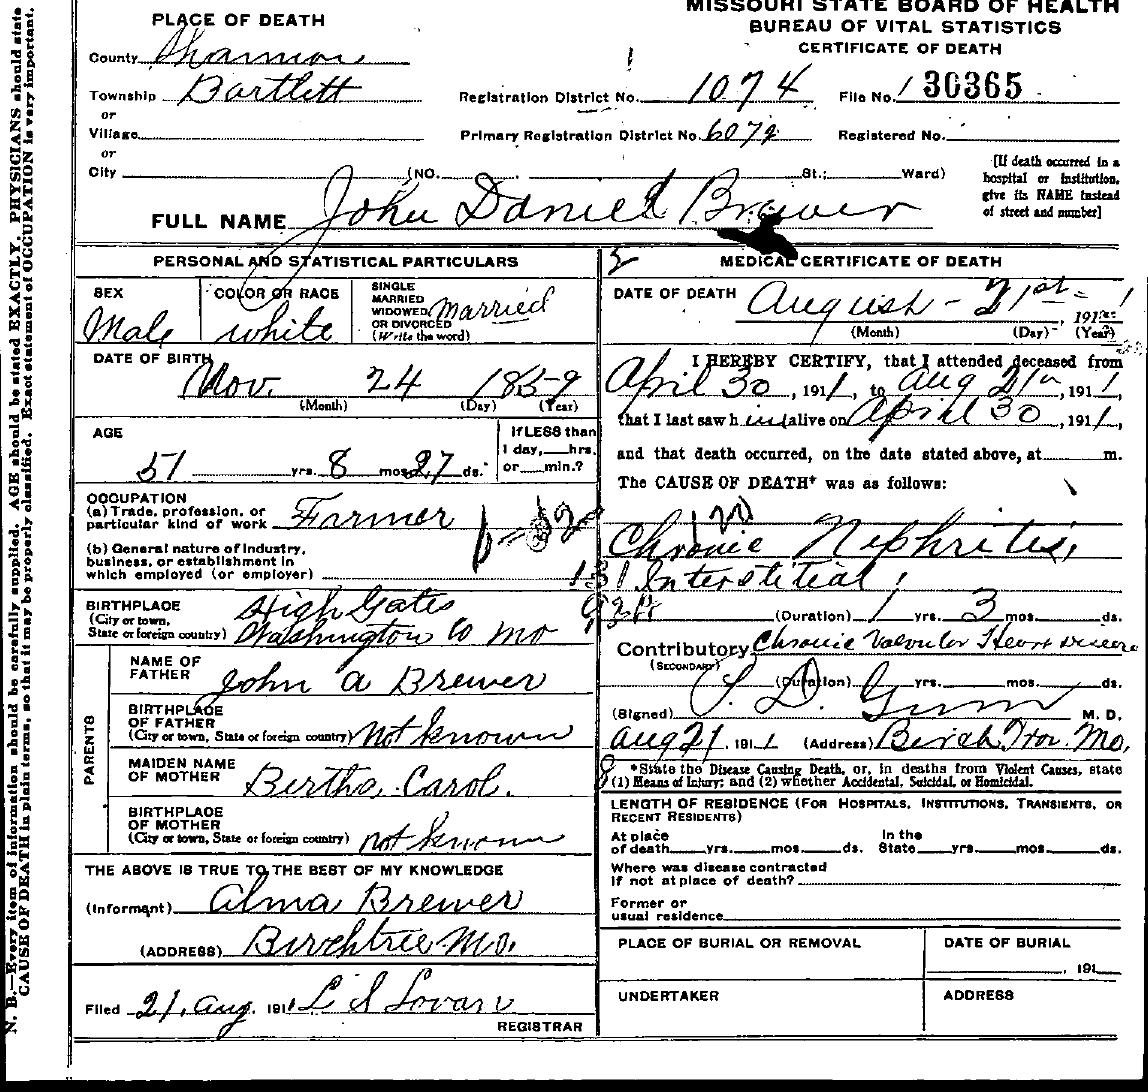 MISSOURI STATE BOARD OF HEALTH
BUREAU OF VITAL STATISTICS
CERTIFICATE OF DEATH
PLACE OF DEATH
County Shannon
Township Bartlett
or
Village
or
City (NO. St.; Ward)
Registration District No. 1074 File No. 30365
Primary Registration District No. 6079 Registered No.
[If death occurred in a
hospital or institution,
give its NAME instead
of street and number]
FULL NAME John Daniel Brewer
PERSONAL AND STATISTICAL PARTICULARS
SEX
Male
COLOR OR RACE
white
SINGLE
MARRIED
WIDOWED
OR DIVORCED
(Write the word)
Married
DATE OF BIRTH
Nov. 24 1859
(Month) (Day) (Year)
AGE
51 yrs. 8 mos. 27 ds.
If LESS than
1 day, hrs.
or min.?
OCCUPATION
(a) Trade, profession, or
particular kind of work Farmer
(b) General nature of industry,
business, or establishment in
which employed (or employer)
BIRTHPLACE
(City or town,
State or foreign country)
High Gates
Washington Co Mo
PARENTS
NAME OF
FATHER
John A Brewer
BIRTHPLACE
OF FATHER
(City or town, State or foreign country) Not known
MAIDEN NAME
OF MOTHER
Bertha Carol.
BIRTHPLACE
OF MOTHER
(City or town, State or foreign country) not known
THE ABOVE IS TRUE TO THE BEST OF MY KNOWLEDGE
(Informant) Alma Brewer
(ADDRESS) Birchtree Mo.
Filed 21, Aug. 1911 L S Lovan
REGISTRAR
MEDICAL CERTIFICATE OF DEATH
DATE OF DEATH
August - 21st 191
(Month) (Day) (Year)
I HEREBY CERTIFY, that I attended deceased from
April 30, 1911, to Aug 21, 1911,
that I last saw him alive on April 30, 1911,
and that death occurred, on the date stated above, at m.
The CAUSE OF DEATH* was as follows:
Chronic Nephritis,
Interstitial,
(Duration) 1 yrs. 3 mos. ds.
Contributory Chronic Valvular Heart disease
(SECONDARY)
(Duration) yrs. mos. ds.
(Signed) Gunn M. D.
Aug 21, 1911 (Address) Birch Tree, Mo.
*State the Disease Causing Death, or, in deaths from Violent Causes, state
(1) Means of Injury; and (2) whether Accidental, Suicidal, or Homicidal.
LENGTH OF RESIDENCE (FOR HOSPITALS, INSTITUTIONS, TRANSIENTS, OR
RECENT RESIDENTS)
At place In the
of death yrs. mos. ds. State yrs. mos. ds.
Where was disease contracted
If not at place of death?
Former or
usual residence
PLACE OF BURIAL OR REMOVAL
DATE OF BURIAL
, 191
UNDERTAKER
ADDRESS
N. B.—Every item of information should be carefully supplied. AGE should be stated EXACTLY. PHYSICIANS should state
CAUSE OF DEATH in plain terms, so that it may be properly classified. Exact statement of OCCUPATION is very important.